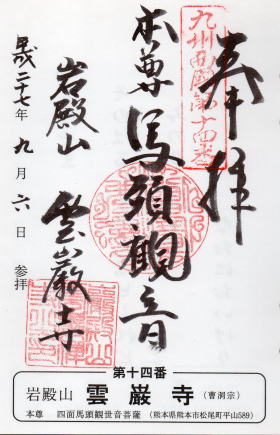 奉拝
九州西国第十四番
本尊馬頭観音
岩殿山
雲巌寺
平成二十七年九月六日 参拝
第十四番
岩殿山 雲巌寺 (曹洞宗)
本尊 四面馬頭観世音菩薩 (熊本県熊本市松尾町平山589)